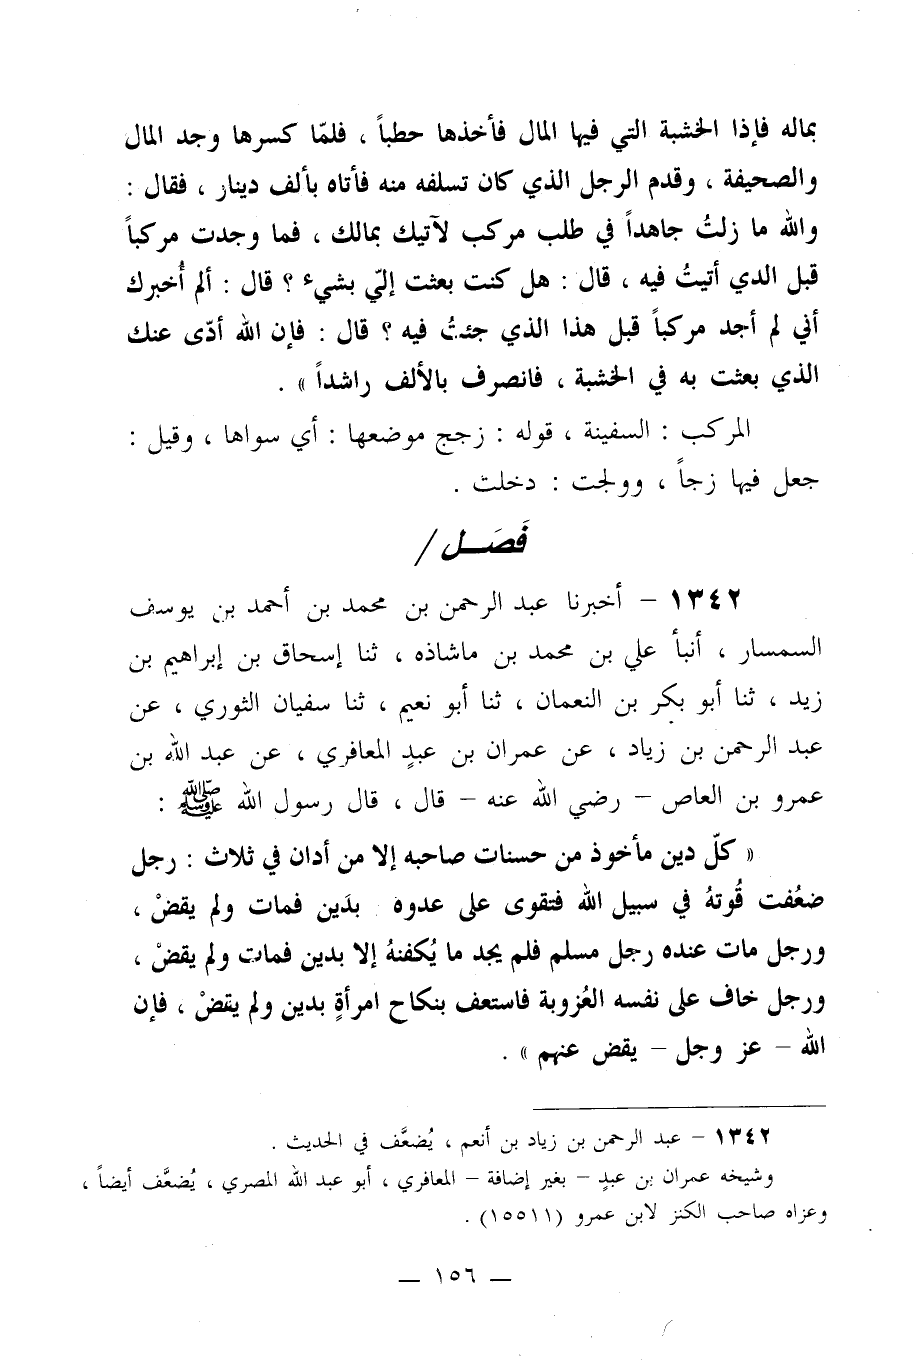 بماله فإذا الخشبة التي فيها المال فأخذها حطباً ، فلمّا كسرها وجد المال
والصحيفة ، وقدم الرجل الذي كان تسلفه منه فأتاه بألف دينار ، فقال :
والله ما زلتُ جاهداً في طلب مركب لآتيك بمالك ، فما وجدت مركباً
قبل الدي أتيتُ فيه ، قال : هل كنت بعثت إليّ بشيء ؟ قال : ألم أُخبرك
أني لم أجد مركباً قبل هذا الذي جئتُ فيه ؟ قال : فإن الله أدّى عنك
الذي بعثت به في الخشبة ، فانصرف بالألف راشداً » .
المركب : السفينة ، قوله : زجج موضعها : أي سواها ، وقيل :
جعل فيها زجاً ، وولجت : دخلت .
فَصَل /
١٣٤٢ – أخبرنا عبد الرحمن بن محمد بن أحمد بن يوسف
السمسار ، أنبأ علي بن محمد بن ماشاذه ، ثنا إسحاق بن إبراهيم بن
زيد ، ثنا أبو بكر بن النعمان ، ثنا أبو نعيم ، ثنا سفيان الثوري ، عن
عبد الرحمن بن زياد ، عن عمران بن عبدٍ المعافري ، عن عبد الله بن
عمرو بن العاص – رضي الله عنه – قال ، قال رسول الله ﷺ :
« كلّ دين مأخوذ من حسنات صاحبه إلا من أدان في ثلاث : رجل
ضعُفت قُوتهُ في سبيل الله فتقوى على عدوه بدَين فمات ولم يقضْ ،
ورجل مات عنده رجل مسلم فلم يجد ما يُكفنهُ إلا بدين فمات ولم يقضْ ،
ورجل خاف على نفسه العُزوبة فاستعف بنكاح امرأةٍ بدين ولم يقضْ ، فإن
الله – عز وجل – يقض عنهم » .
١٣٤٢ – عبد الرحمن بن زياد بن أنعم ، يُضعَّف في الحديث .
وشيخه عمران بن عبدٍ – بغير إضافة – المعافري ، أبو عبد الله المصري ، يُضعَّف أيضاً ،
وعزاه صاحب الكنز لابن عمرو (١٥٥١١) .
– ١٥٦ –